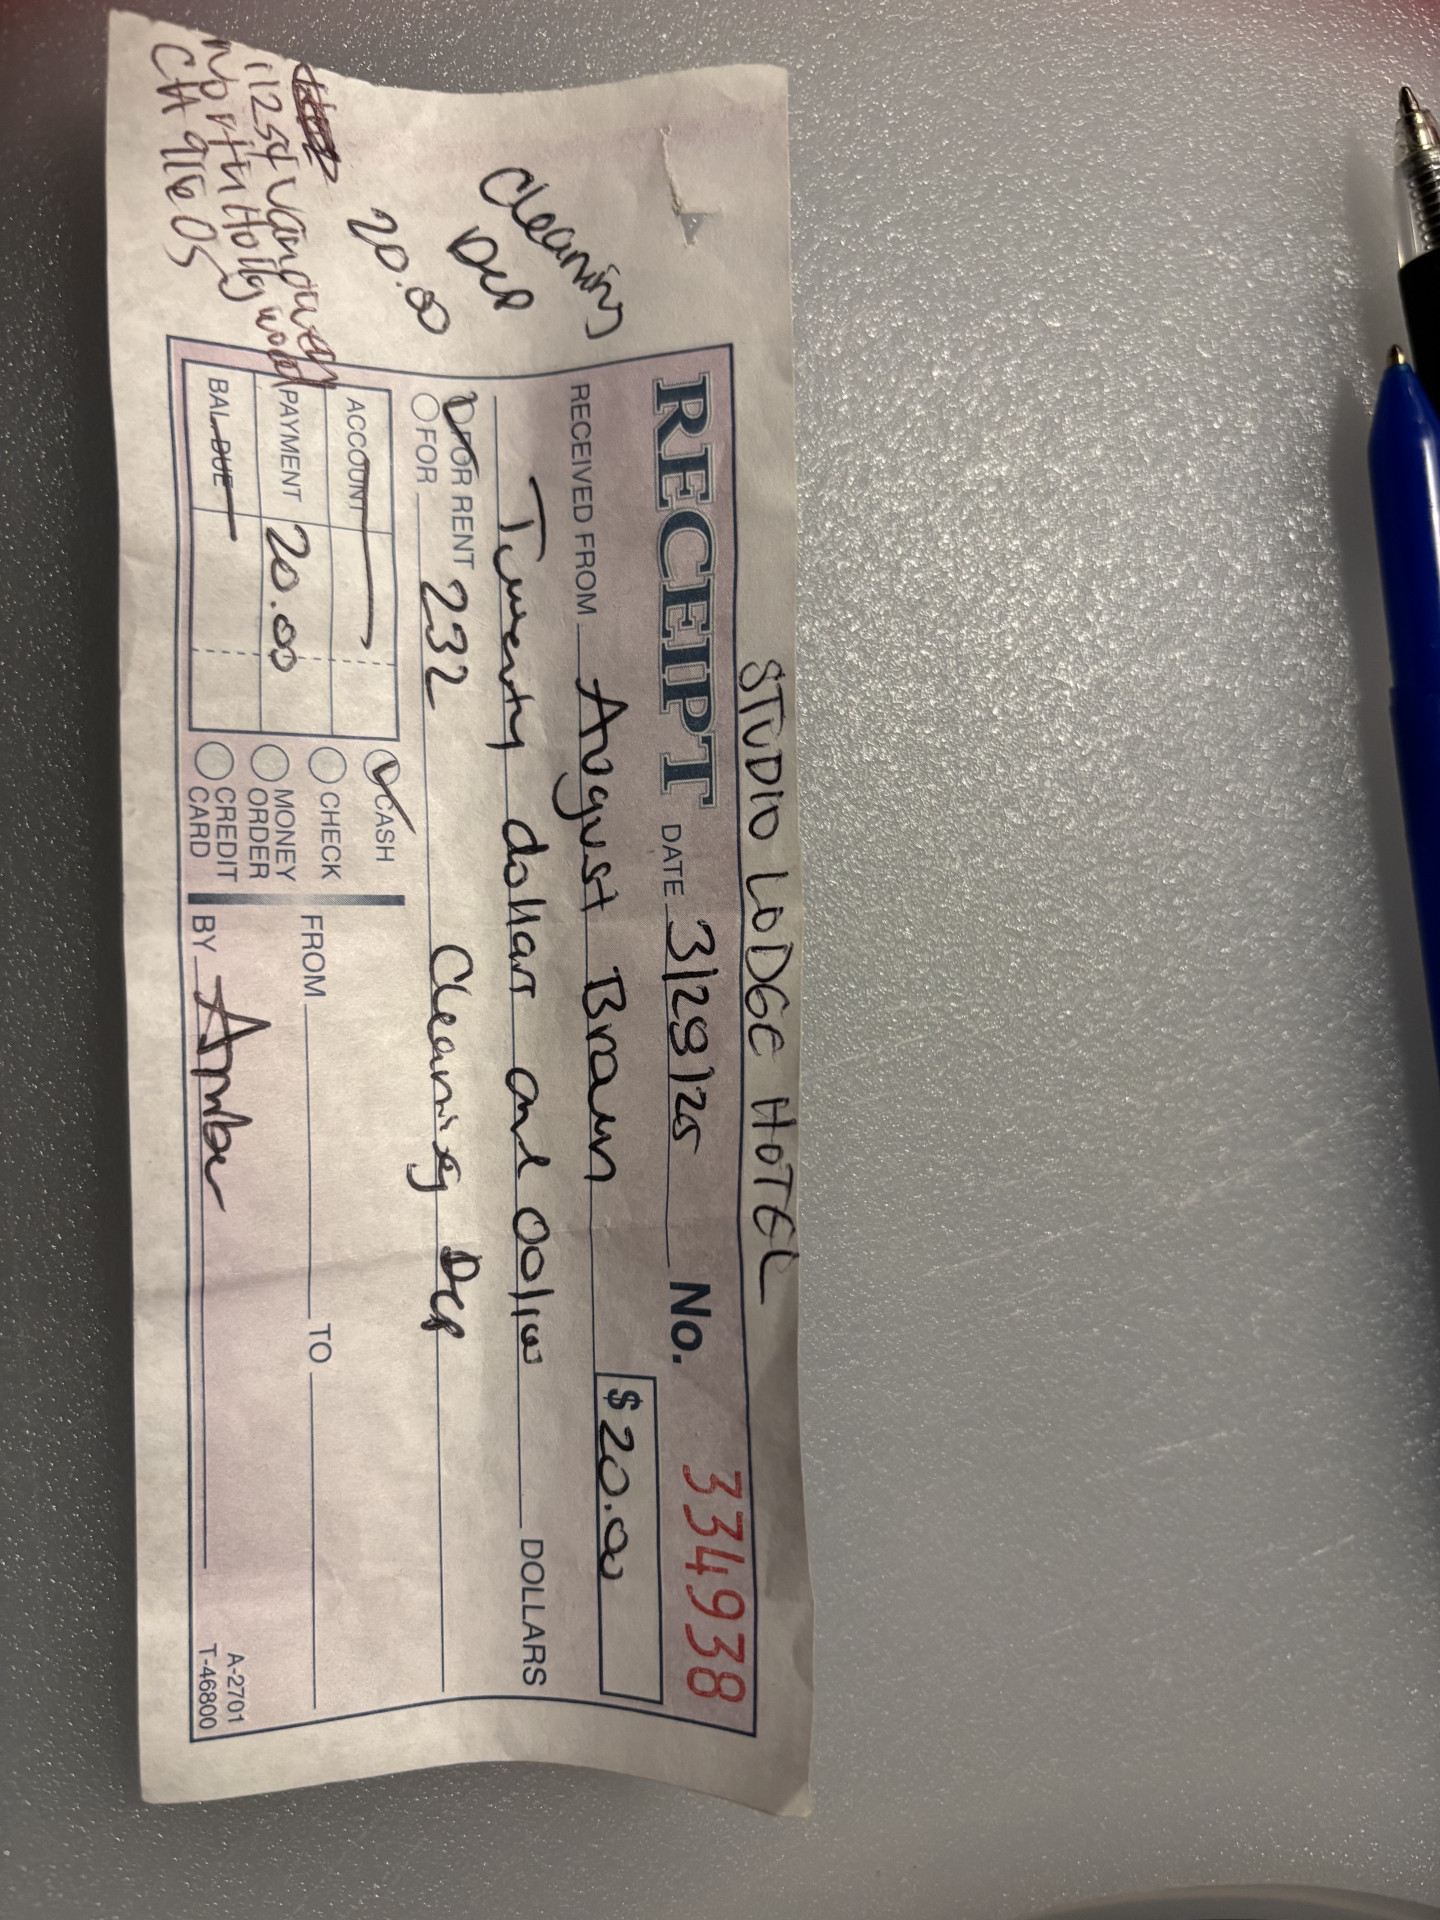 STUDIO LODGE HOTEL
RECEIPT DATE 3/29/25 No. 334938
RECEIVED FROM August Braun $20.00
Twenty dollars and 00/100 DOLLARS
FOR RENT
FOR 232 Cleaning Dep
ACCOUNT
PAYMENT 20.00
BAL. DUE
CASH
CHECK
MONEY ORDER
CREDIT CARD
FROM TO
BY Amber
A-2701
T-46800
Cleaning
Dep
20.00
11254 Vanowen
North Hollywood
CA 91605